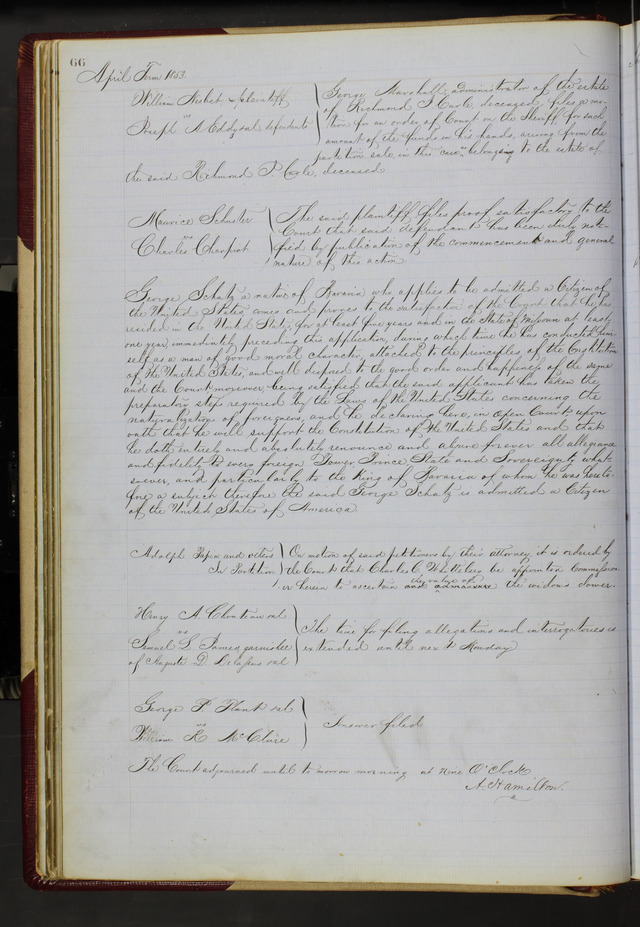 66
April Term 1853.
William Nisbet
vs
Joseph A Eddy et al defendants
George Marshall, administrator of the estate
of Richmond P Carle, deceased, files a mo-
tion for an order of Court on the Sheriff for such
amount of the funds in his hands, arising from the
partition sale, in this case, belonging to the estate of
the said Richmond P Carle, deceased
Maurice Schuster
vs
Charles Charpiot
The said plaintiff files proof satisfactory to the
Court that said defendant has been duly noti-
fied by publication of the commencement and general
nature of this action
George Schatz a native of Bavaria who applies to be admitted a Citizen of
the United States comes and proves to the satisfaction of the Court that he has
resided in the United States, for at least five years and in the State of Missouri at least
one year, immediately preceding this application, during which time he has conducted him
self as a man of good moral character, attached to the principles of the Constitution
of the United States, and well disposed to the good order and happiness of the same
and the Court moreover, being satisfied that the said applicant has taken the
preparatory steps required by the Laws of the United States concerning the
naturalization of foreigners, and he declaring here, in open Court upon
oath that he will support the Constitution of the United States and that
he doth entirely and absolutely renounce and abjure forever all allegiance
and fidelity to every foreign Power Prince State and Sovereignty what
soever, and particularly to the King of Bavaria of whom he was hereto-
fore a subject therefore the said George Schatz is admitted a Citizen
of the United States of America
Adolph and others
In Partition
On motion of said petitioners by their attorney, it is ordered by
the Court that Charles C Whittlesey be appointed Commission
er herein to ascertain the value of the widows dower
Henry A. Chouteau et al
vs
Samuel L James garnishee
of Auguste D Delassus et al
The time for filing allegations and interrogatories is
extended until next Monday
George P Plant et al
vs
William R McClure
Answer filed
The Court adjourned until to morrow morning at nine O'Clock
A. Hamilton.